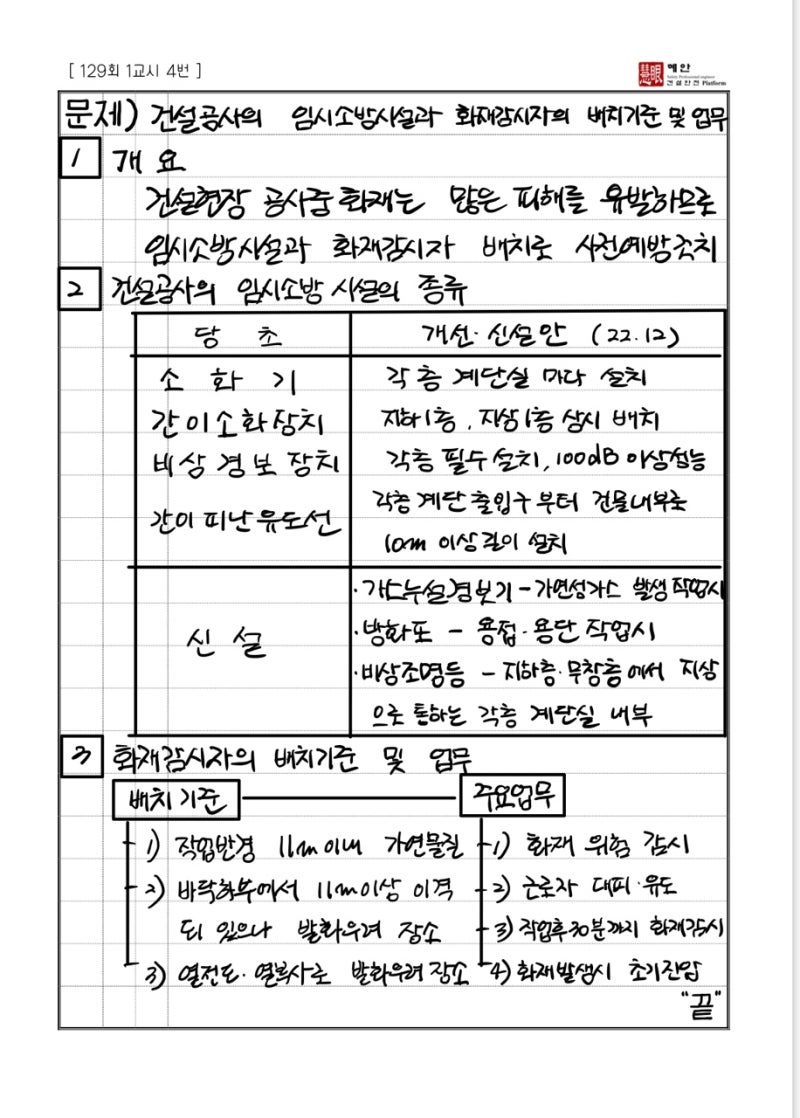 [ 129회 1교시 4번 ]
慧眼 혜안
Safety Professional engineer
건설안전 Platform
문제) 건설공사의 임시소방시설과 화재감시자의 배치기준 및 업무
1 개 요
건설현장 공사중 화재는 많은 피해를 유발하므로
임시소방시설과 화재감시자 배치로 사전예방조치
2 건설공사의 임시소방 시설의 종류
당 초 개선·신설안 (22.12)
소 화 기 각 층 계단실 마다 설치
간이소화장치 지하1층, 지상1층 상시 배치
비상경보장치 각층 필수 설치, 100dB 이상성능
간이피난유도선 각층 계단 출입구 부터 건물내부로
10m 이상길이 설치
신 설 ·가스누설경보기 - 가연성가스 발생작업시
·방화포 - 용접·용단 작업시
·비상조명등 - 지하층·무창층에서 지상
으로 통하는 각층 계단실 내부
3 화재감시자의 배치기준 및 업무
배치기준 주요업무
1) 작업반경 11m이내 가연물질 1) 화재 위험 감시
2) 바닥하부에서 11m이상 이격 2) 근로자 대피·유도
되 있으나 발화우려 장소 3) 작업후30분까지 화재감시
3) 열전도·열복사로 발화우려장소 4) 화재발생시 초기진압
"끝"